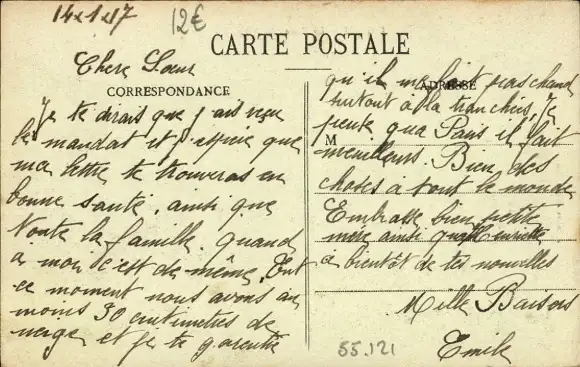 14-1-17
12€
CARTE POSTALE
CORRESPONDANCE
ADRESSE
M
Chere Sœur
Je te dirais que j ais reçu
le mandat et j espère que
ma lettre te trouveras en
bonne santé. ainsi que
toute la famille. quand
a moi c'est de même. En
ce moment nous avons au
moins 30 centimetres de
neige et je te garentie
qu'il ne fait pas chaud
surtout à la tranchées, Je
pense qua Paris il fait
meuilleurs. Bien des
choses à tout le monde
Embrasse bien petite
mère ainsi
a bientôt de tes nouvelles
Mille Baisers
Emile
55.121